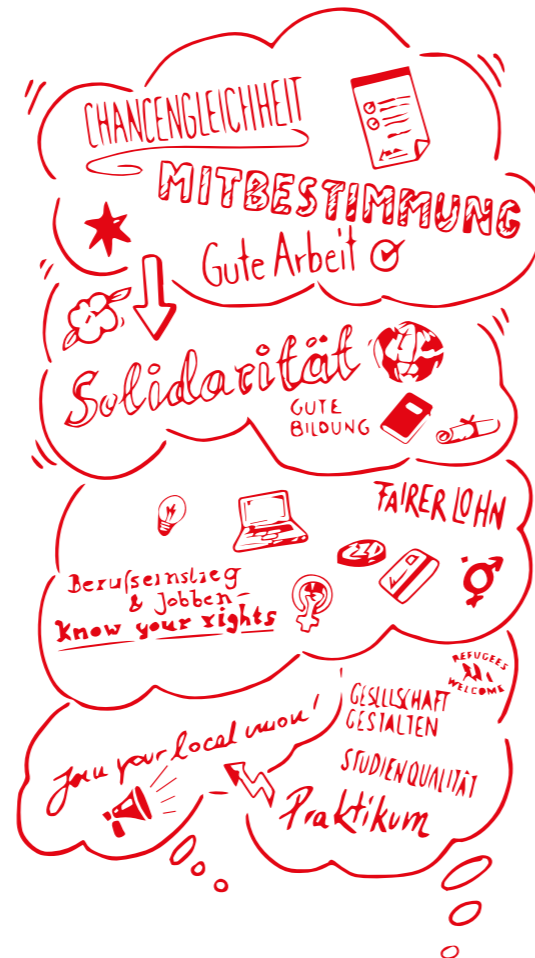 CHANCENGLEICHHEIT
MITBESTIMMUNG
Gute Arbeit
Solidarität
GUTE
BILDUNG
FAIRER LOHN
Berufseinstieg
& Jobben-
Know your rights
REFUGEES
WELCOME
GESELLSCHAFT
GESTALTEN
Join your local union!
STUDIENQUALITÄT
Praktikum